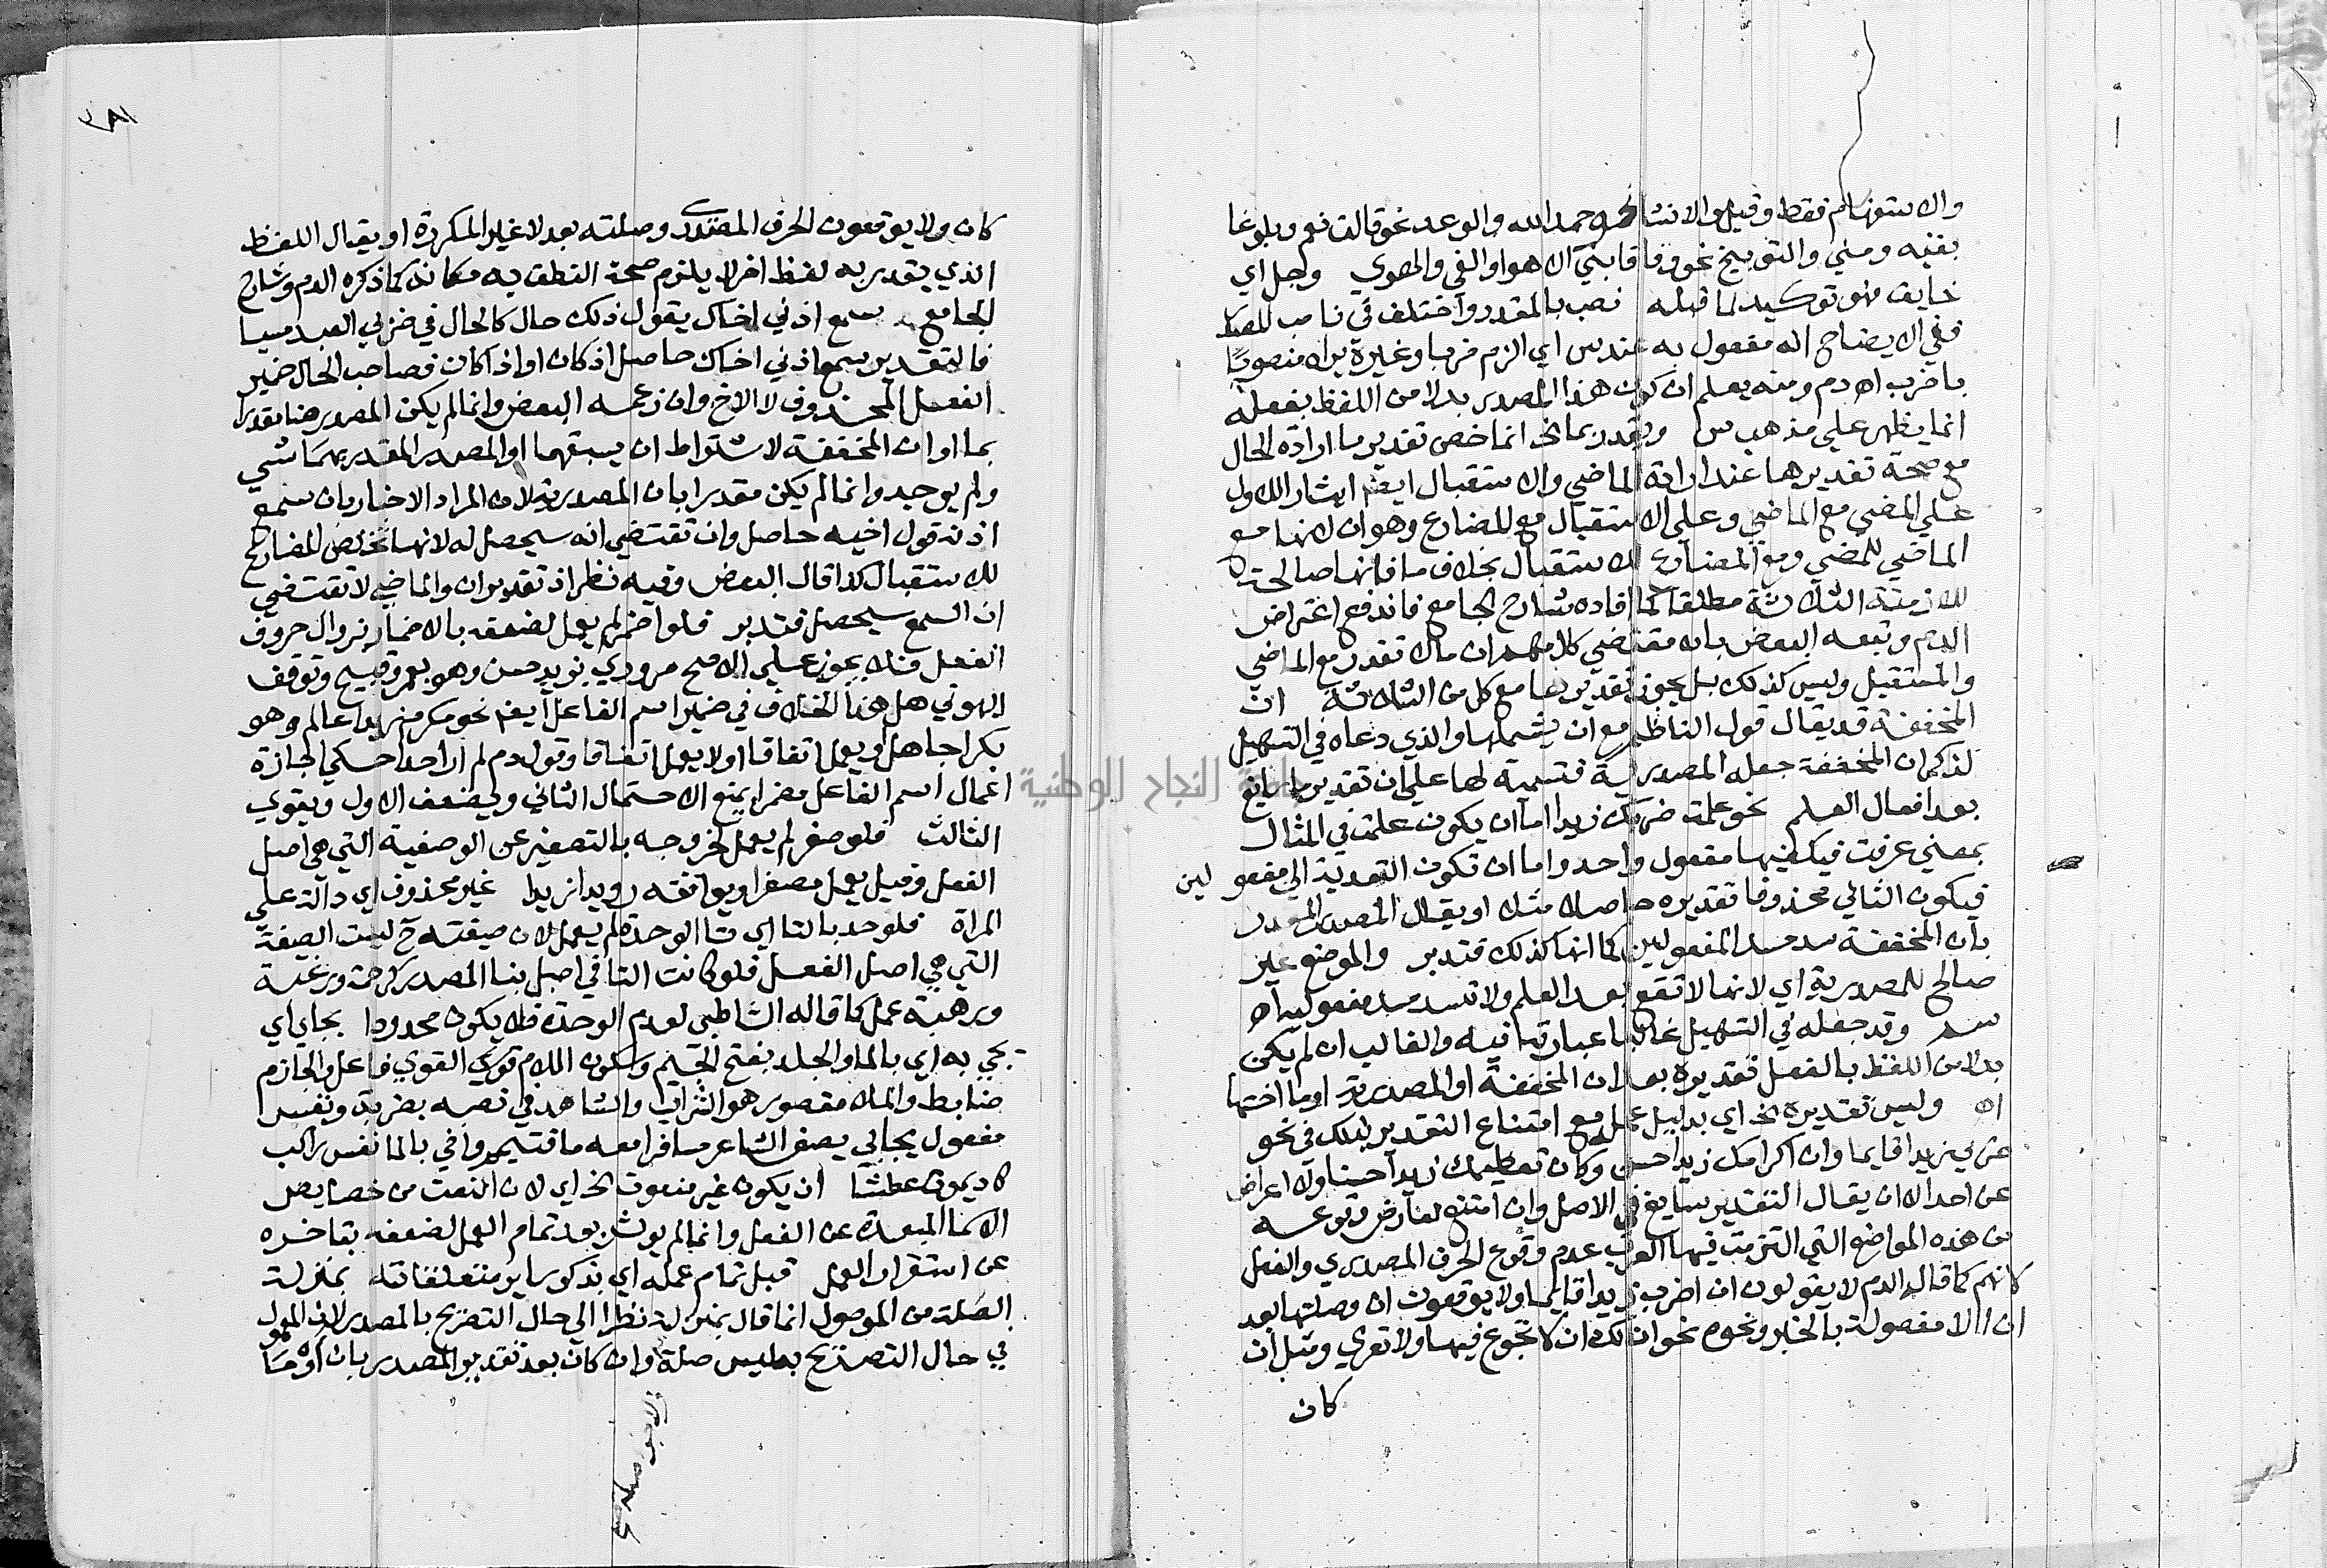 والاستفهام فقط وقيل والانشا نحو حمد الله والوعد نحو قالت نعم وبلوغا
بغيه ومني والتوبيخ نحو وفاقا بني الاهوا والغي والهوي وجل اي
خايف فهو توكيد لما قبله نصب بالمقدر واختلف في ناصب للمصدر
ففي الايضاح انه مفعول به عند س اي الزم ضربا وغيره يراه منصوبا
باضرب اه دم ومنه يعلم ان كون هذا المصدر بدلا من اللفظ بفعله
انما يظهر علي مذهب س ويقدر بما الخ انما خص تقدير ما ارادة الحال
مع صحة تقديرها عند ارادة الماضي والاستقبال ايضا ايثارا للاول
علي المضي مع الماضي وعلي الاستقبال مع المضارع وهو ان لانها مع
الماضي للمضي ومع المضارع للاستقبال بخلاف ما فانها صالحة
للازمنة الثلاثة مطلقا كما افاده شارح الجامع فاندفع اعتراض
الدم وتبعه البعض بان مقتضي كلامهم ان ما لا تقدر مع الماضي
والمستقبل وليس كذلك بل يجوز تقديرها مع كل من الثلاثة ان
المخففة قد يقال قول الناظم مع ان يشملها والذي دعاه في التسهيل
لذكر ان المخففة جعله المصدرية قسيمة لها علي ان تقدير ما سايغ
بعد افعال العلم نحو علمت ضربك زيدا اما ان يكون علمت في المثال
بمعني عرفت فيكفيها مفعول واحد واما ان تكون التعدية الي مفعولين
فيكون الثاني محذوفا تقديره حاصلا مثلا او يقال المصدر المقدر
بان المخففة سد مسد المفعولين كما انها كذلك فتدبر والموضع غير
صالح للمصدرية اي لانها لا تقع بعد العلم ولا تسد مسد مفعوليه اه
سم وقد جعله في التسهيل غالبا عبارتها فيه والغالب ان لم يكن
بدلا من اللفظ بالفعل تقديره بعد ان المخففة او المصدرية او ما اختها
اه وليس تقديره الخ اي بدليل عمله مع امتناع التقدير بذلك في نحو
ضربي زيدا قايما وان اكرامك زيدا حسن وكان تعظيمك زيدا حسنا ولا اعراض
عن احد الا ان يقال التقدير سايغ في الاصل وان امتنع لعارض وقوعه
من هذه المواضع التي التزمت فيها العرب عدم وقوع الحرف المصدري والفعل
كانهم كما قال الدم لا يقولون ان اضرب زيدا قايما ولا يوقعون ان وصلتها بعد
ان الا مفصولة بالخبر ونحوه نحو ان لك ان لا تجوع فيها ولا تعري ومثل ان
كان
كان ولا يوقعون الحرف المصدري وصلته بعد لا غير المكررة او يقال اللفظ
الذي يقدر به لفظ اخر لا يلزم صحة النطق به مكانه كما ذكره الدم وشارح
الجامع سمع اذني اخاك يقول ذلك حال كالحال في ضربي العبد مسيا
فالتقدير سمع اذني اخاك حاصل اذ كان او اذا كان فصاحب الحال ضمير
الفعل المحذوف لا الاخ وان زعمه البعض وانما لم يكن المصدر هنا مقدرا
بما او ان المخففة لاشتراط ان يسبقهما او المصدر المقدر بهما شي
ولم يوجد وانما لم يكن مقدرا بان المصدرية لان المراد الاخبار بان سمع
اذنه قول اخيه حاصل وان تقتضي انه سيحصل له لانها تخلص المضارع
للاستقبال كذا قال البعض وفيه نظر اذ تقدير ان والماضي لا تقتضي
ان السمع سيحصل فتدبر فلو اضمر لم يعمل لضعفه بالاضمار بزوال حروف
الفعل منه لا يجوز علي الاصح مروري بزيد حسن وهو بعمرو قبيح وتوقف
البهوتي هل هذا الخلاف في ضمير اسم الفاعل ايضا نحو مكرم زيدا عالم وهو
بكرا جاهل او يعمل اتفاقا او لا يعمل اتفاقا وقول دم لم ار احدا حكي اجازة
اعمال اسم الفاعل مضمرا يمنع الاحتمال الثاني ويضعف الاول ويقوي
الثالث فلو صغر لم يعمل لخروجه بالتصغير عن الوصفية التي هي اصل
الفعل وقيل يعمل مصغرا ويوافقه رويدا زيدا غير محذوف اي دالة علي
المراة فلو حد بالتا اي تا الوحدة لم يعمل لان صيغته ح ليست الصيغة
التي هي اصل الفعل فلو كانت التا في اصل بنا المصدر كرحمة ورغبة
ورهبة عمل كما قاله الشاطبي لعدم الوحدة فلا يكون محدودا يجايي اي
يحي به اي بالما والجلد بفتح الجيم وسكون اللام القوي فاعل والحازم
ضابط والملا مقصور هو التراب والشاهد في نصبه بضربة ونفس
مفعول يجايي يصف الشاعر مسافرا معه ما فتيمم واحي بالما نفس راكب
كاد يموت عطشا ان يكون غير منعوت الخ اي لان النعت من خصايص
الاسما المبعدة عن الفعل وانما لم يوثر بعد تمام العمل لضعفه بتاخره
عن استقرار العمل قبل تمام عمله اي بذكر ساير متعلقاته بمنزلة
الصلة من الموصول انما قال بمنزلة نظرا الي حال التصريح بالمصدر لان المعمول
في حال التصريح به ليس صلة وان كان بعد تقدير المصدر بان او ما